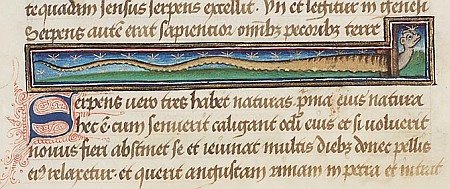 tequadam sensus serpens excellit. Vn et legitur in genesi
Serpens aute erat sapientior omnibz pecoribz terre
Serpens vero tres habet naturas. pma eius natura
hec e. cum senuerit caligant oculi eius et si voluerit
novus fieri abstinet se et ieiunat multis diebz donec pellis
eius relaxetur. et querit angustam rimam in petra et intrat